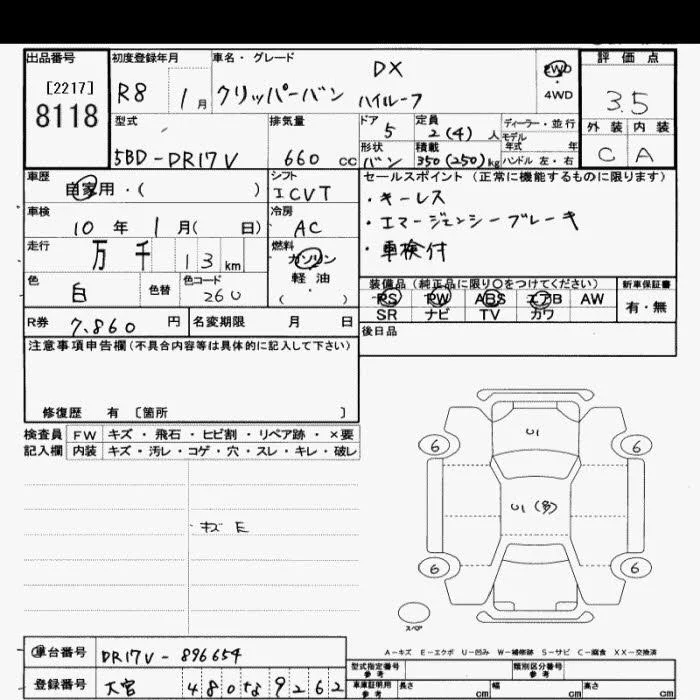 出品番号
[2217]
8118
初度登録年月
R8 1月
車名・グレード
クリッパーバン DX ハイルーフ
2WD
・
4WD
評価点
3.5
外装 内装
C A
型式
5BD-DR17V
排気量
660 cc
ドア
5
定員
2(4)人
ディーラー・並行
モデル
年式 年
ハンドル 左・右
形状
バン
積載
350(250)kg
車歴
自家用・( )
シフト
ICVT
セールスポイント (正常に機能するものに限ります)
・キーレス
・エマージェンシーブレーキ
・車検付
車検
10年 1月( 日)
冷房
AC
走行
万 千 13 km
燃料
ガソリン
・
軽油
( )
色
白
色替
色コード
260
装備品 (純正品に限り〇をつけてください)
PS PW ABS エアB AW
SR ナビ TV カワ
新車保証書
有・無
R券 7,860 円
名変期限 月 日
後日品
注意事項申告欄 (不具合内容等は具体的に記入して下さい)
修復歴 有 〔箇所 〕
検査員 FW キズ・飛石・ヒビ割・リペア跡・×要
記入欄 内装 キズ・汚レ・コゲ・穴・スレ・キレ・破レ
キズ E
U1
6 6
U1 (多)
6 6
スペア
A-キズ E-エクボ U-凹み W-補修跡 S-サビ C-腐食 XX-交換済
車台番号 DR17V-896654
登録番号 大宮 480な9262
型式指定番号
参考
類別区分番号
参考
車庫証明用
参考
長さ cm 幅 cm 高さ cm